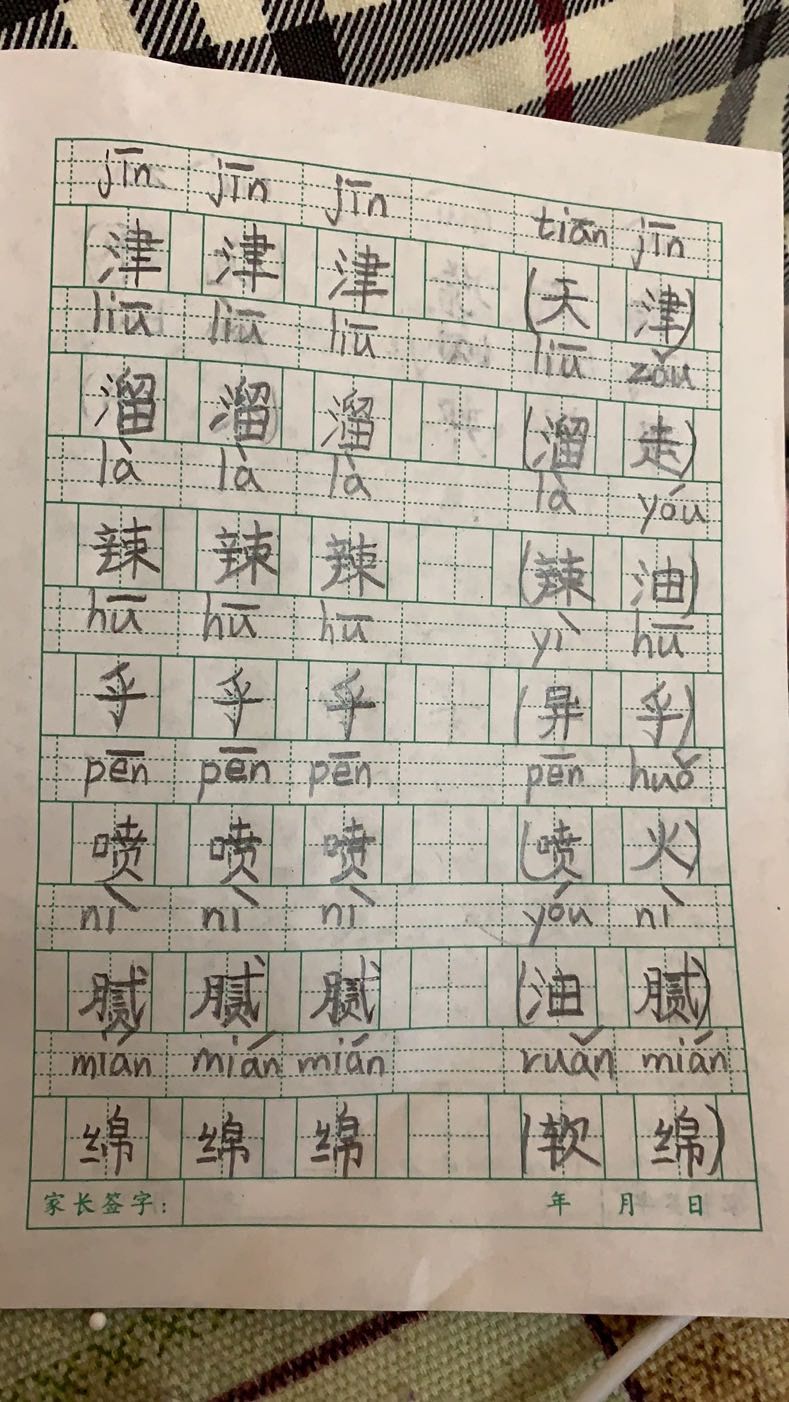 jīn jīn jīn tiān jīn
津 津 津 (天 津)
liū liū liū liū zǒu
溜 溜 溜 (溜 走)
là là là là yóu
辣 辣 辣 (辣 油)
hū hū hū yì hū
乎 乎 乎 (异 乎)
pēn pēn pēn pēn huǒ
喷 喷 喷 (喷 火)
nì nì nì yóu nì
腻 腻 腻 (油 腻)
mián mián mián ruǎn mián
绵 绵 绵 (软 绵)
家长签字: 年 月 日